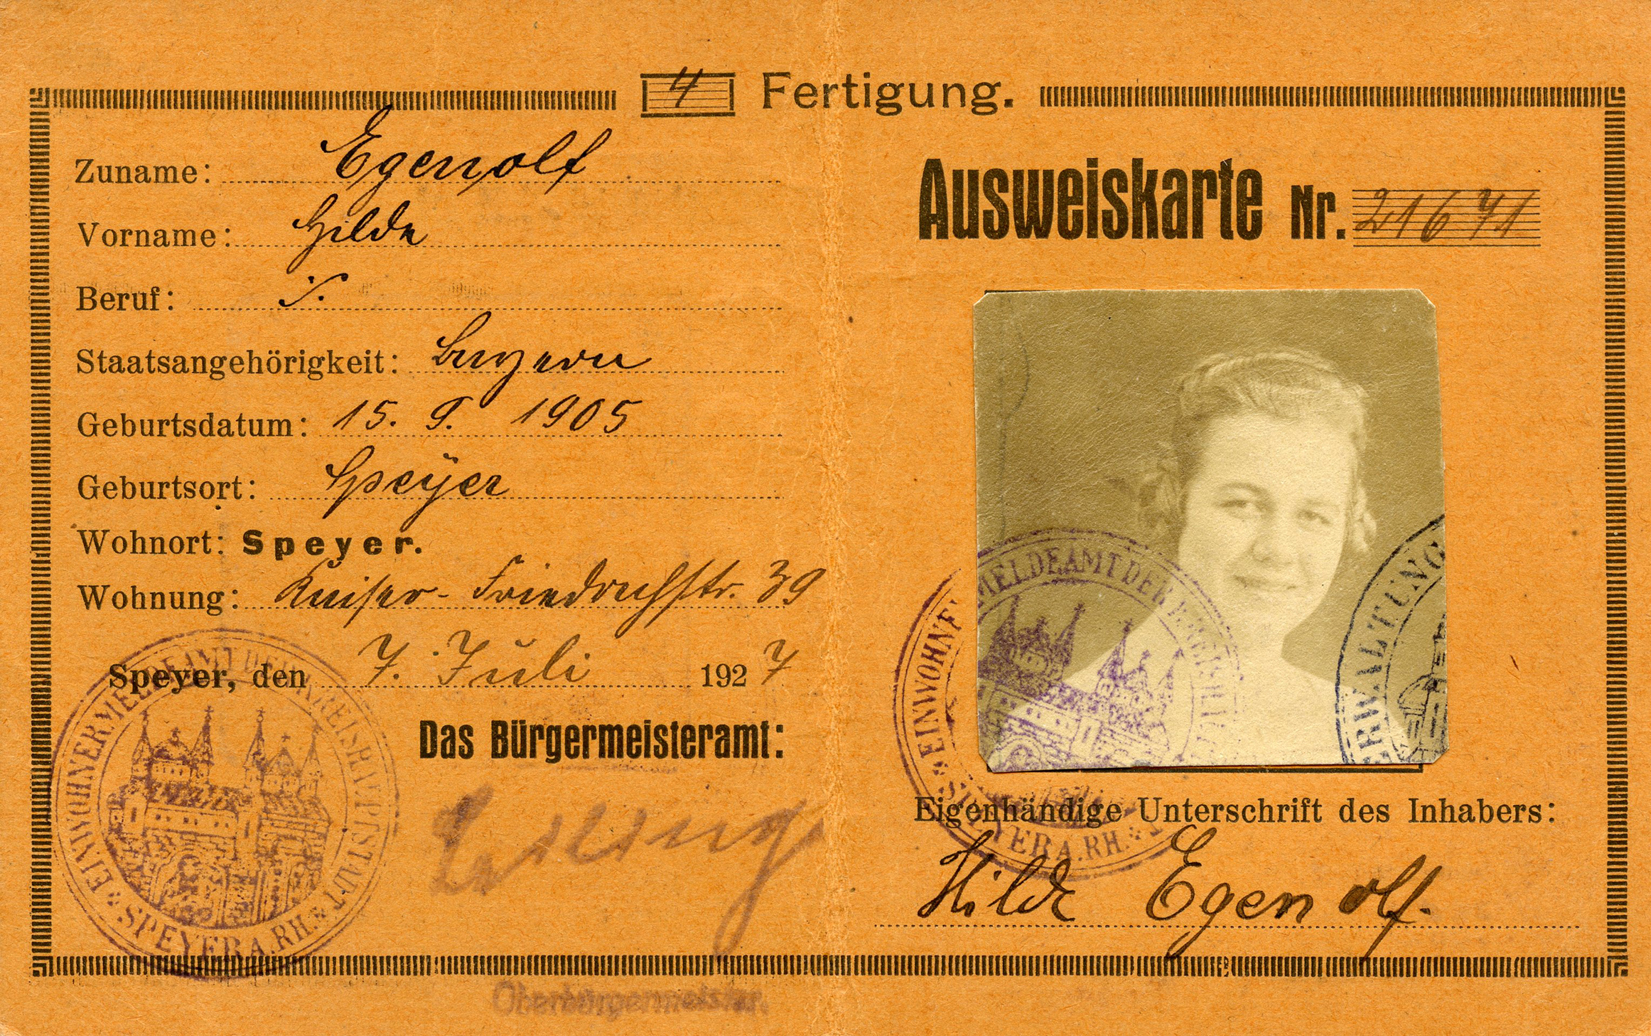 4 Fertigung.
Zuname: Egenolf
Vorname: Hilde
Beruf: ./.
Staatsangehörigkeit: Bayern
Geburtsdatum: 15. 9. 1905
Geburtsort: Speyer
Wohnort: Speyer.
Wohnung: Kaiser-Friedrichstr. 39
Speyer, den 7. Juli 1927
Das Bürgermeisteramt:
EINWOHNERMELDEAMT DER KREISHAUPTSTADT
SPEYER A. RH.
Oberbürgermeister.
Ausweiskarte Nr. 21671
EINWOHNERMELDEAMT DER KREISHAUPT
SPEYER A. RH.
ERWALTUNG
Eigenhändige Unterschrift des Inhabers:
Hilde Egenolf.